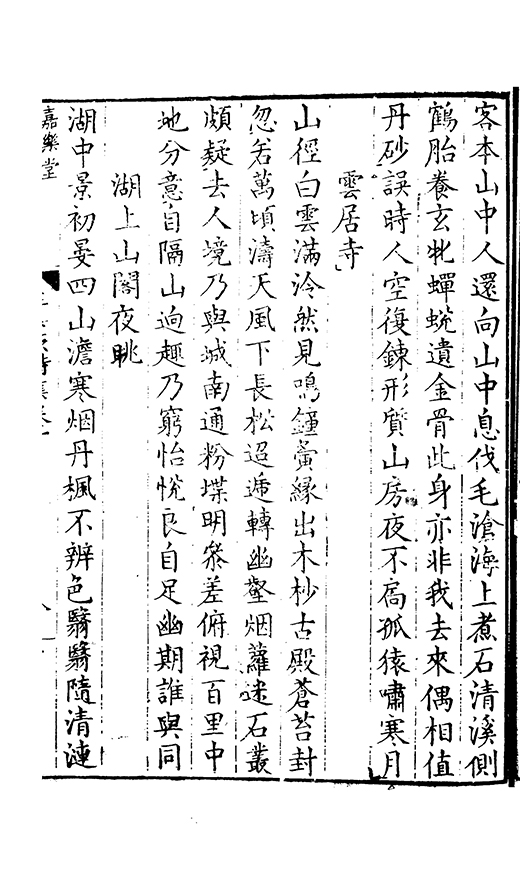 客本山中人還向山中息伐毛滄海上煮石清溪側
鶴胎養玄牝蟬蛻遺金骨此身亦非我去來偶相值
丹砂誤時人空復鍊形質山房夜不扃孤猿嘯寒月
雲居寺
山徑白雲滿泠然見鳴鐘夤緣出木杪古殿蒼苔封
忽若萬頃濤天風下長松迢遞轉幽壑烟蘿迷石叢
頗疑去人境乃與城南通粉堞明參差俯視百里中
地分意自隔山逈趣乃窮怡悅良自足幽期誰與同
湖上山閣夜眺
湖中景初晏四山澹寒烟丹楓不辨色翳翳隨清漣
嘉樂堂
詩集卷
八